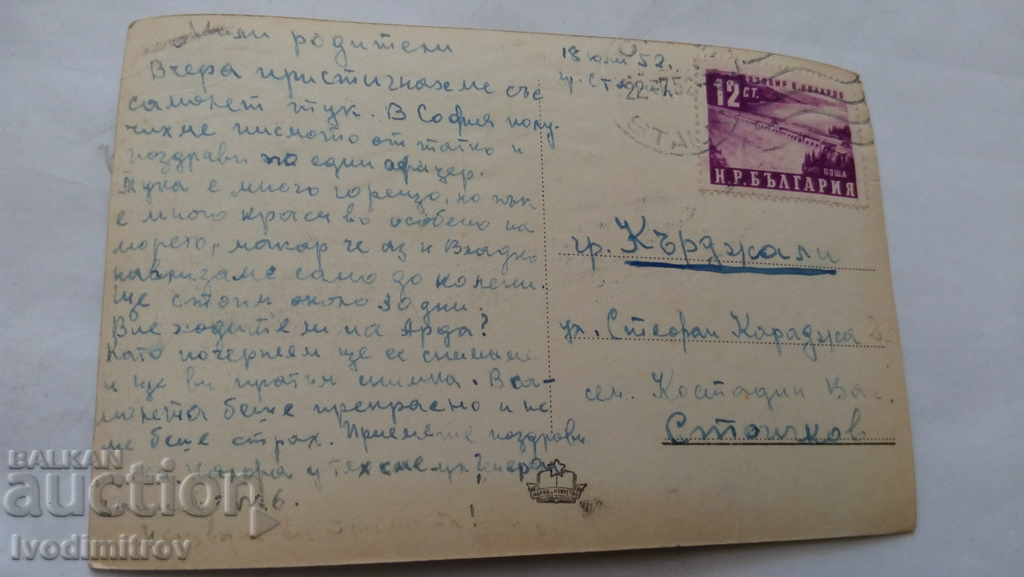 Мили родители
Вчера пристигнахме със
самолет тук. В София полу-
чихме писмото от татко и
поздрави по един офицер.
Тука е много горещо, но пък
е много красиво особено на
морето, макар че аз и Владко
навлизаме само до колени.
Ще стоим около 20 дни.
Вие ходите ли на Арда?
Като почернеем ще се снимаме
и ще ви пратим снимка. В са-
молета беше прекрасно и не
ме беше страх. Приемете поздрави
у тях сме
18 юли 52.
гр. Ст
22-7.52
12 СТ.
ПОЩА
Н.Р.БЪЛГАРИЯ
гр. Кърджали
ул. Стефан Караджа
сем. Костадин Вас.
Стоичков
BALKAN
auction
Ivodimitrov